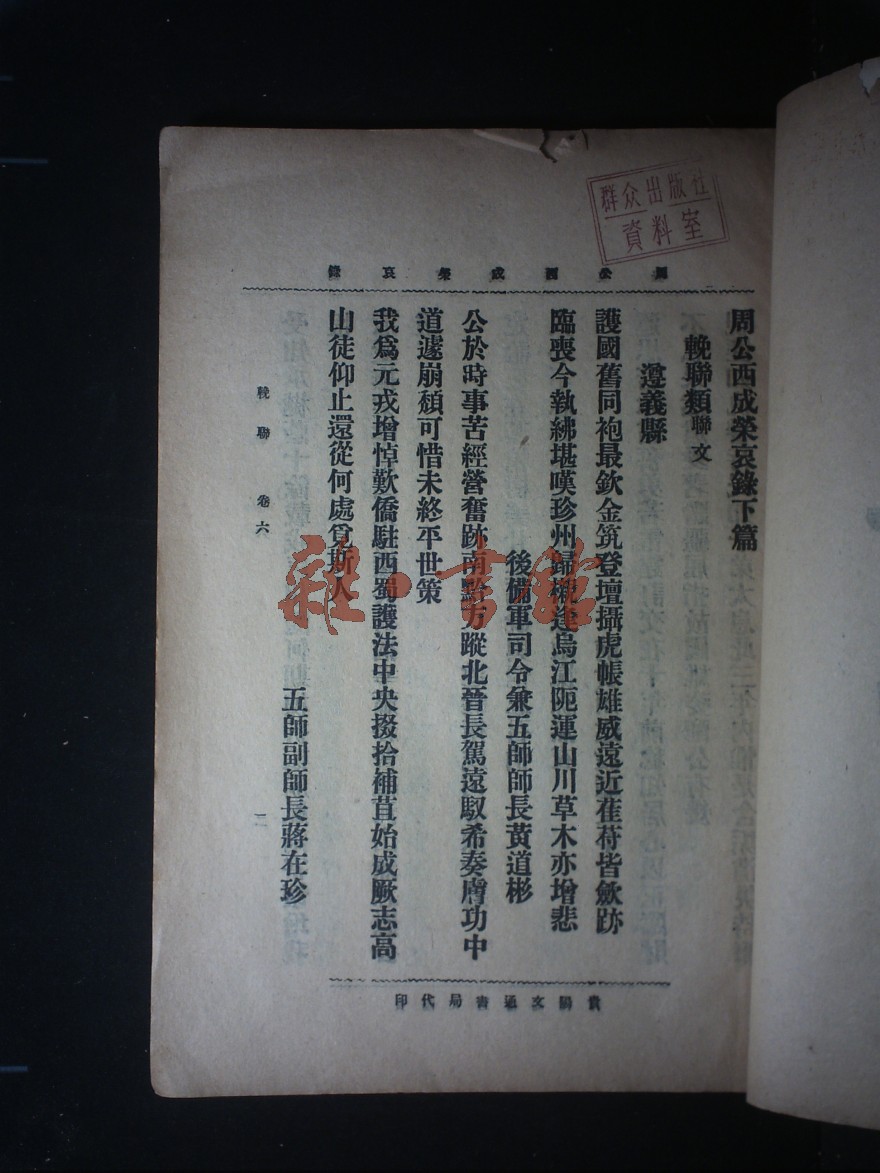 群众出版社
資料室
周公西成榮哀錄
周公西成榮哀錄下篇
輓聯類 聯文
遵義縣
護國舊同袍最欽金筑登壇攝虎帳雄威遠近萑苻皆歛跡
臨喪今執紼堪嘆珍州歸櫬逢烏江阨運山川草木亦增悲
後備軍司令兼五師師長黃道彬
公於時事苦經營奮跡南黔方蹤北晉長駕遠馭希奏膚功中
道遽崩頹可惜未終平世策
我爲元戎增悼歎僑駐西蜀護法中央掇拾補苴始成厥志高
山徒仰止還從何處覓斯人
五師副師長蔣在珍
輓聯 卷六
二
貴陽文通書局代印
雜·書館